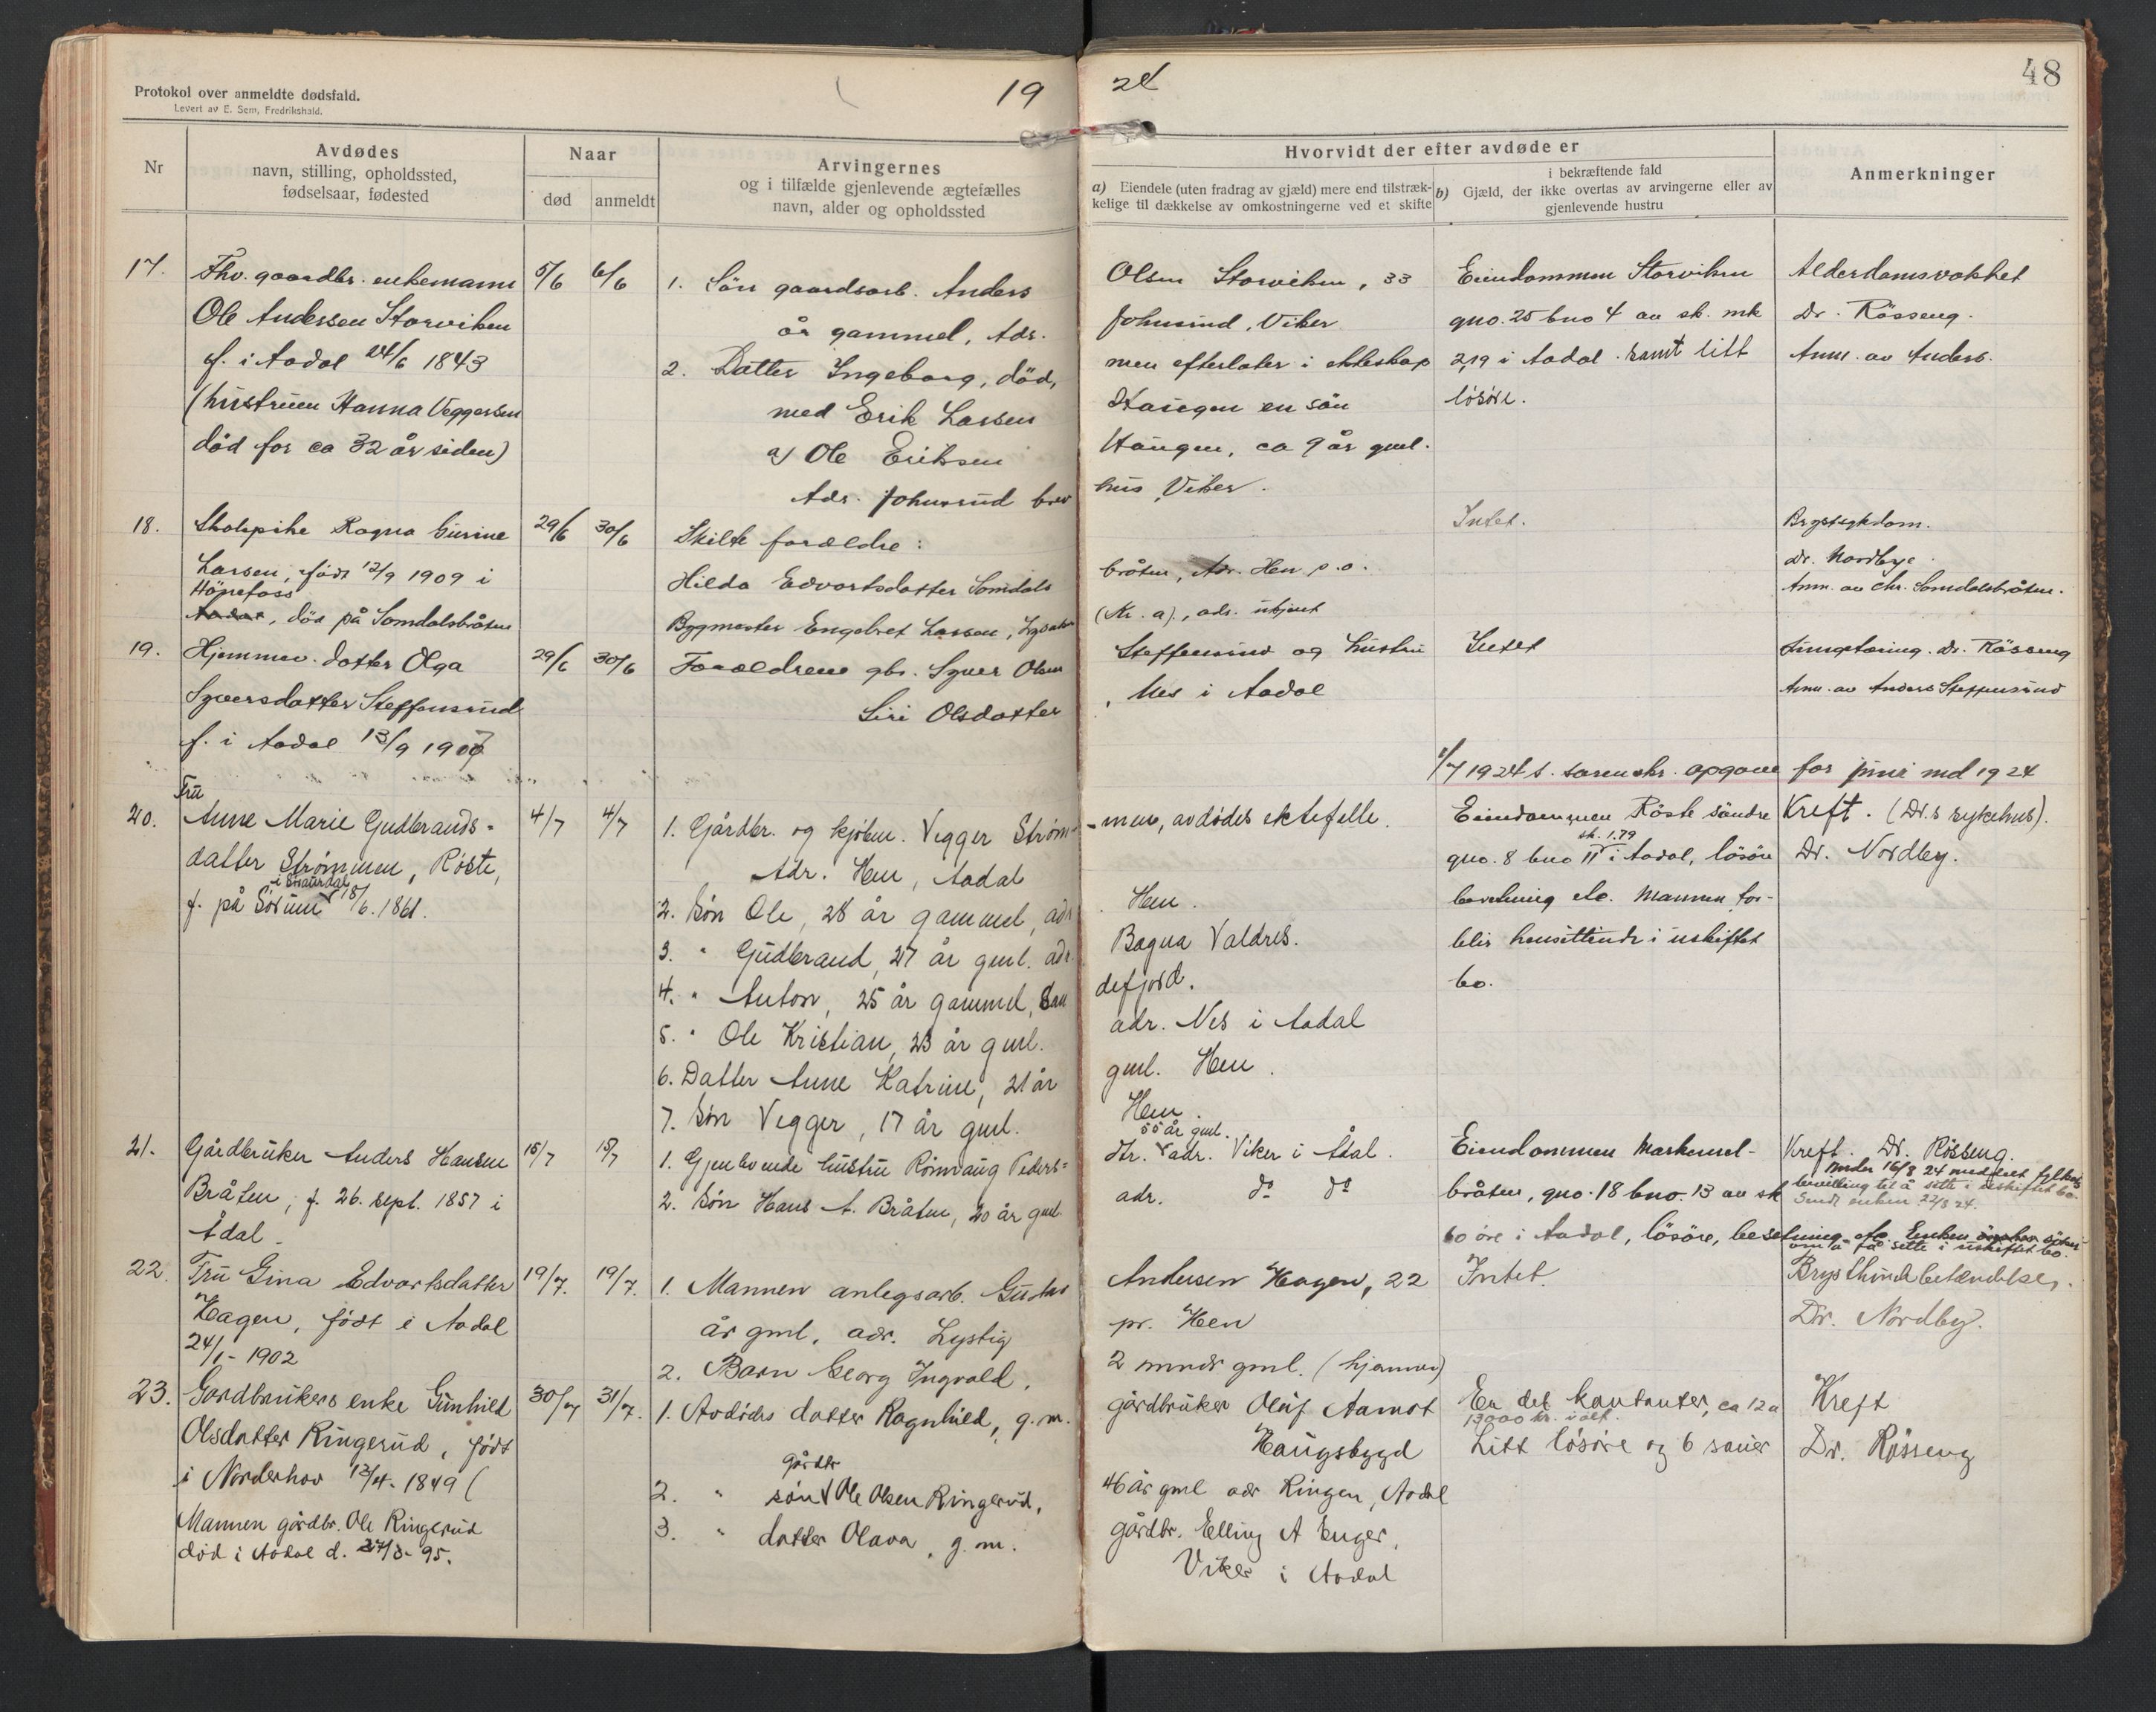 Protokol over anmeldte dødsfald.
Levert av E. Sem, Fredrikshald.
19 24
48
Nr
Avdødes
navn, stilling, opholdssted,
fødselsaar, fødested
Naar
død anmeldt
Arvingernes
og i tilfælde gjenlevende ægtefælles
navn, alder og opholdssted
Hvorvidt der efter avdøde er
a) Eiendele (uten fradrag av gjæld) mere end tilstræk-
kelige til dækkelse av omkostningerne ved et skifte
i bekræftende fald
b) Gjæld, der ikke overtas av arvingerne eller av
gjenlevende hustru
Anmerkninger
17.
Fhv. gaardbr. enkemann
Ole Andersen Storviken
f. i Aadal 24/6 1843
(hustruen Hanna Veggersen
død for ca 32 år siden)
5/6 6/6
1. Sön gaardsarb. Anders Olsen Storviken, 33
år gammel, Adr. Johnsrud, Viker
2. Datter Ingeborg, död, men efterlater i ekteskap
med Erik Larsen Haugen en sön
a) Ole Eriksen Haugen, ca 9 år gml.
Adr. Johnsrud hus, Viker.
Eiendommen Storviken
gno. 25 bno 4 av sk. mk
2,19 i Aadal. samt litt
lösöre.
Alderdomsvakhet
Dr. Rösseng.
Anm. av Anders.
18.
Skolepike Ragna Gurine
Larsen, född 12/9 1909 i
Hönefoss
Aadal, död på Somdalsbråten
29/6 30/6
Skilte forældre:
Hilda Edvartsdatter Somdalsbråten, Adr. Hen p.o.
Bygmester Engebret Larsen, (Kr.a), adr. ukjent
Intet.
Brystsykdom.
Dr. Nordbye.
Anm. av Chr. Somdalsbråten.
19.
Hjemmev. datter Olga
Syversdatter Steffensrud
f. i Aadal 13/9 1907
29/6 30/6
Forældrene gbr. Syver Olsen Steffensrud og hustru
Siri Olsdatter, Nes i Aadal
Intet
Lungetæring. Dr. Rösseng
Anm. av Anders Steffensrud
1/7 1924 s. sorenskr. opgave for juni md 1924
20.
Fru
Anne Marie Gudbrands-
datter Strømmen, Røste,
i Snaurdal
f. på Sørum 18/6. 1861.
4/7 4/7
1. Gårdbr. og kjøbm. Vegger Strøm-men, avdødes ektefelle.
Adr. Hen, Aadal
2. Søn Ole, 28 år gammel, adr. Hen.
3. " Gudbrand, 27 år gml. adr. Bagna Valdres.
4. " Anton, 25 år gammel, Sandefjord.
5. " Ole Kristian, 23 år gml. adr. Nes i Aadal
6. Datter Anne Katrine, 21 år gml. Hen.
7. Søn Vegger, 17 år gml. Hen.
Eiendommen Röste söndre
sk. 1.79
gno. 8 bno 11 i Aadal, lösöre
besetning etc. Mannen for-
blir hensittende i uskiftet
bo.
Kreft. (Dr.s sykehus).
Dr. Nordby.
21.
Gårdbruker Anders Hansen
Bråten, f. 26. sept. 1857 i
Ådal.
15/7 15/7
55 år gml.
1. Gjenlevende hustru Rønnaug Peders-dtr. adr. Viker i Ådal.
2. Søn Hans A. Bråten, 20 år gml. adr. do do
Eiendommen Markemel-
bråten, gno. 18 bno. 13 av sk
60 öre i Aadal, lösöre, besetning etc. Enken
om å få sitte i uskiftet bo.
Kreft. Dr. Rösseng.
Under 16/8 24 meddelt fylkets
bevilling til å sitte i uskiftet bo.
Sendt enken 22/8 24.
22.
Fru Gina Edvartsdatter
Hagen, født i Aadal
24/1 - 1902
19/7. 19/7.
1. Mannen anlegsarb. Gustav Andersen Hagen, 22
år gml, adr. Lystig pr. Hen
2. Barn Georg Ingvald, 2 mndr gml. (hjemme)
Intet.
Brysthindebetændelse.
Dr. Nordby.
23.
Gardbrukers enke Gunhild
Olsdatter Ringerud, født
i Norderhov 13/4. 1849 (
Mannen gårdbr. Ole Ringerud
død i Aadal d. 27/3 - 95.
30/7 31/7.
1. Avdødes datter Ragnhild, g.m. gårdbruker Oluf Aamot
Haugsbygd
gårdbr
2. " søn Ole Olsen Ringerud, 46 år gml adr Ringen, Aadal
3. " datter Olava, g.m. gårdbr. Elling A Enger,
Viker i Aadal
En del kontanter, ca 12 a
13000 kr. i alt.
Litt lösöre og 6 sauer
Kreft
Dr. Rösseng